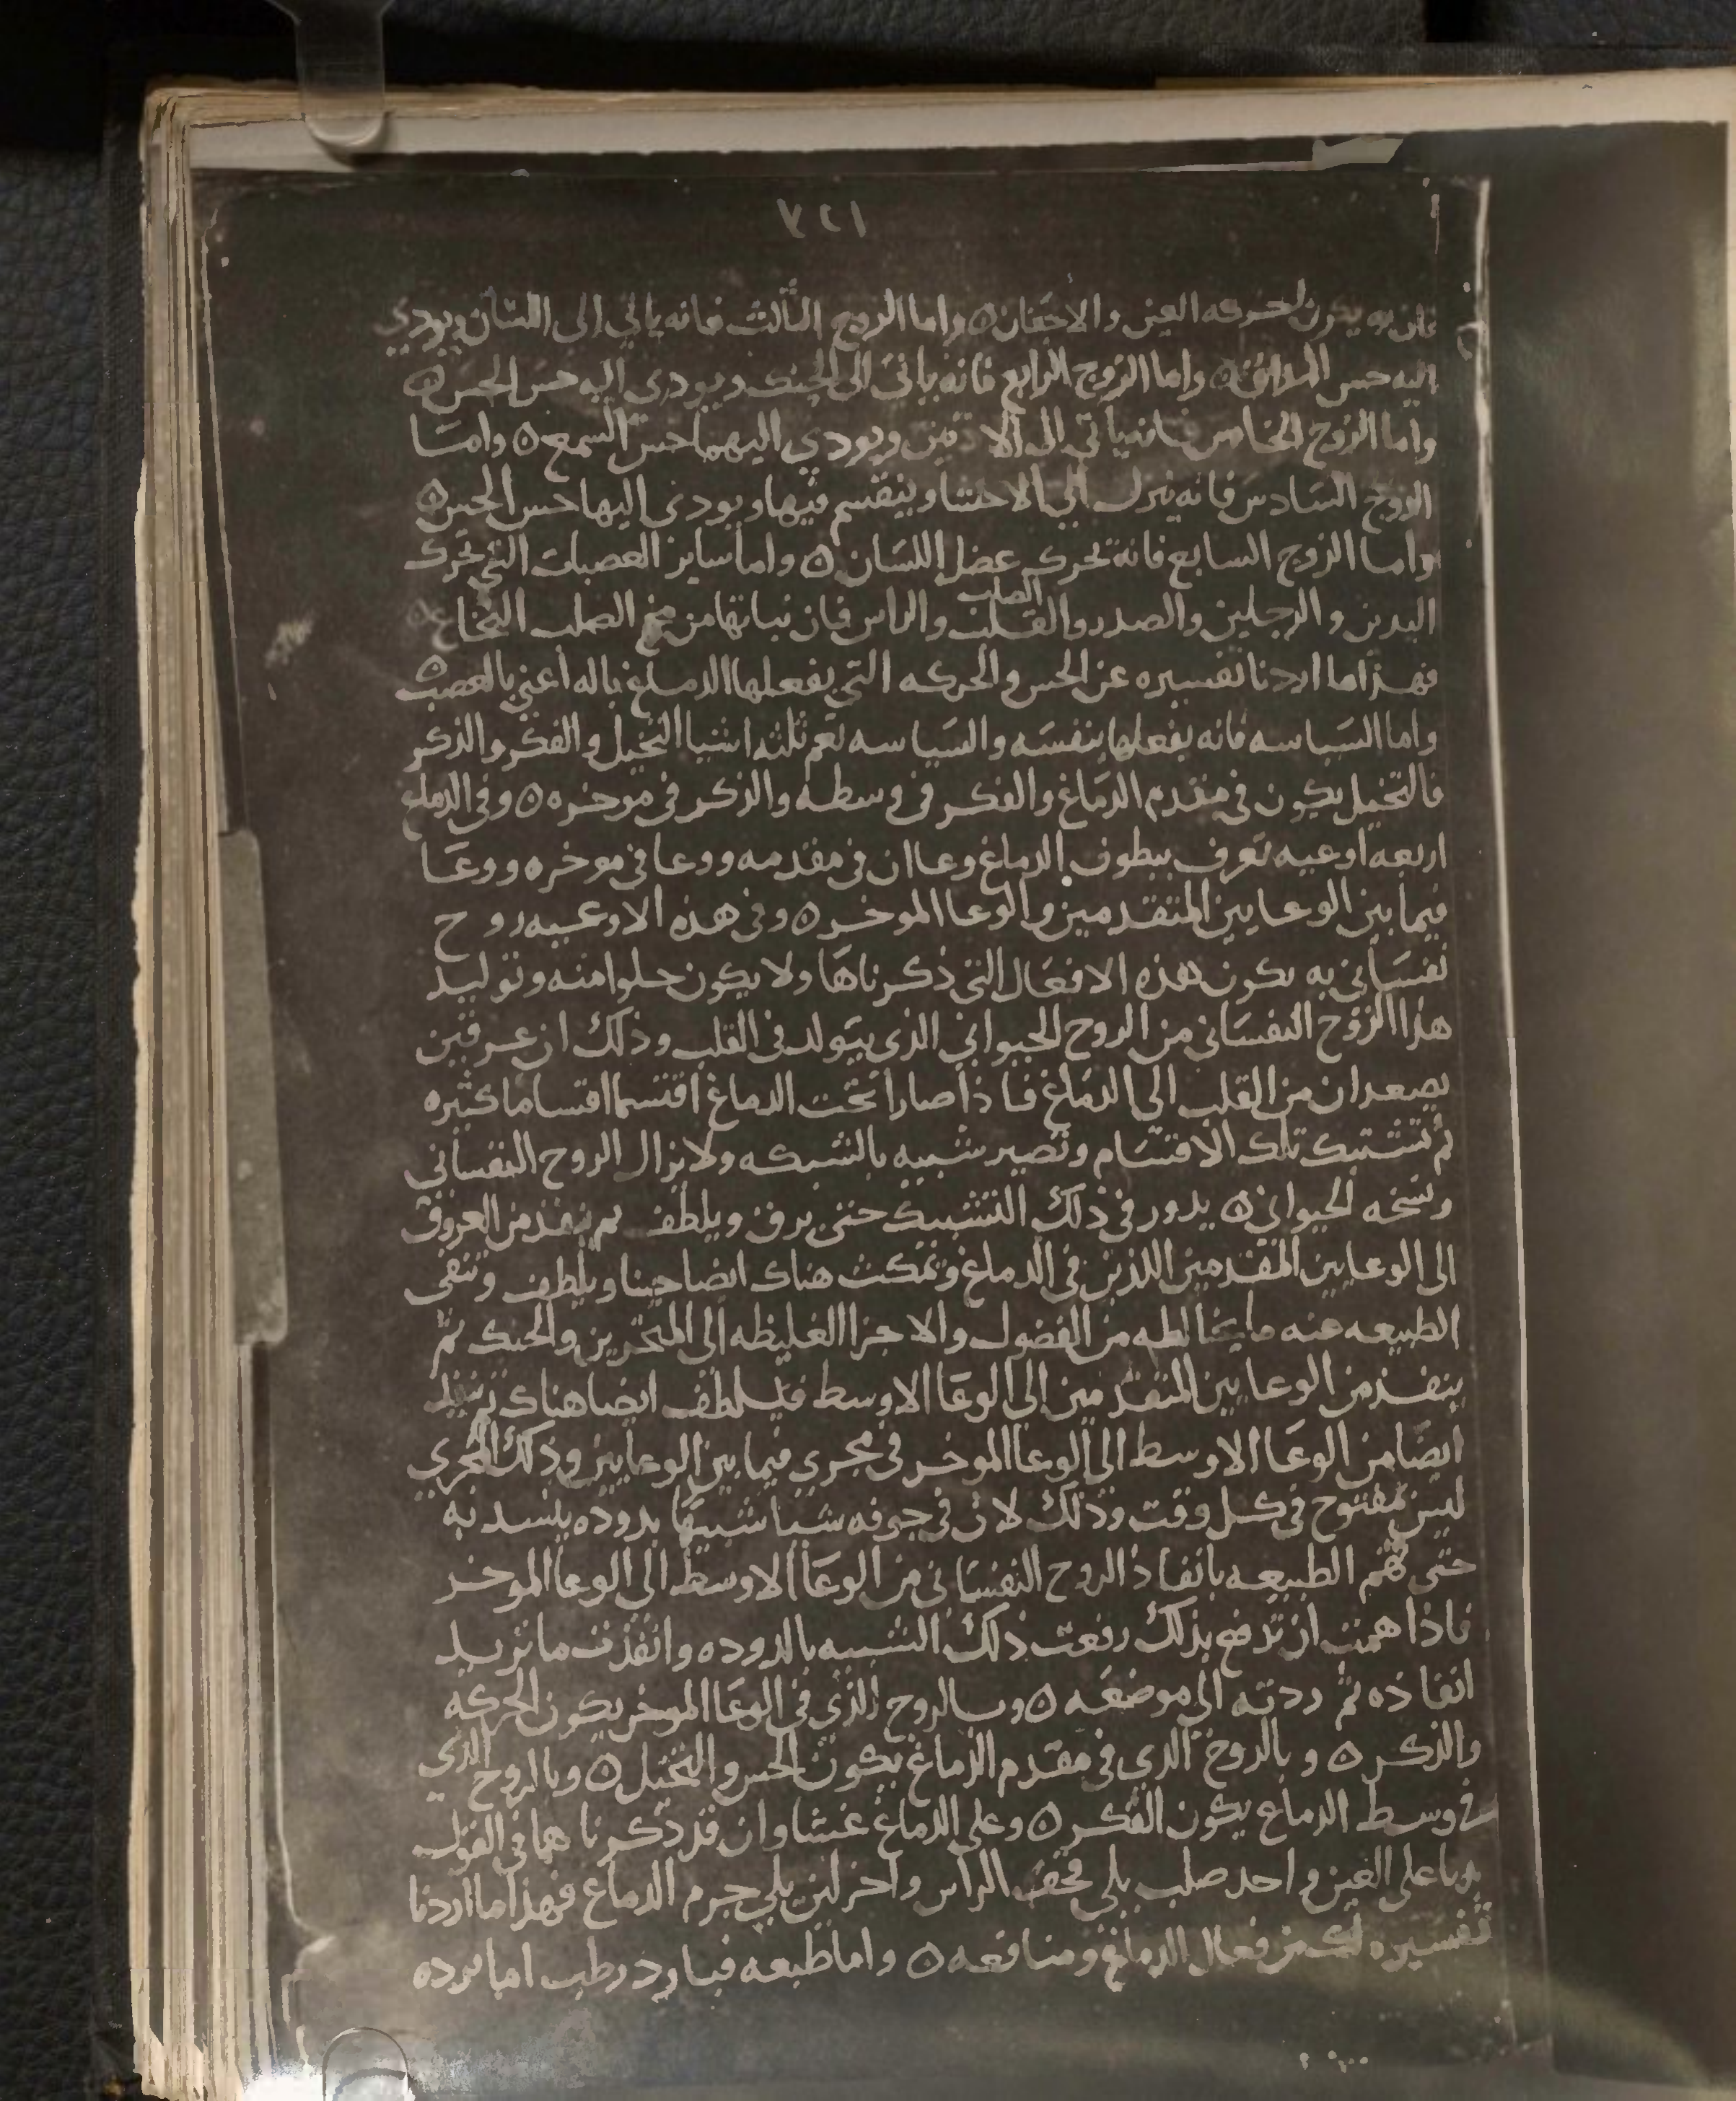 ١٢٧
فان به يكون لحركه العين والاجفان ه واما الزوج الثالث فانه ياتي الى اللسان ويودي
اليه حس المذاق ه واما الزوج الرابع فانه ياتى الى الحنك ويودى اليه حس الحس ه
واما الزوج الخامس فانه ياتي الى الاذنين ويودي اليهما حس السمع ه واما
الزوج السادس فانه ينزل الى الاحشا وينقسم فيها ويودى اليها حس الحس ه
واما الزوج السابع فانه يحرك عضل اللسان ه واما ساير العصبات التي تحرك
اليدين والرجلين والصدر والقلب الصلب والراس فان نباتها من مخ الصلب النخاع ه
فهذا ما اردنا تفسيره عن الحس والحركه التي يفعلها الدماغ باله اعني بالعصب ه
واما السياسه فانه يفعلها بنفسه والسياسه تعم ثلثه اشيا التخيل والفكر والذكر
فالتخيل يكون في مقدم الدماغ والفكر في وسطه والذكر في موخره ه وفي الدماغ
اربعه اوعيه تعرف ببطون الدماغ وعاان في مقدمه ووعا في موخره ووعا
فيما بين الوعايين المتقدمين والوعا الموخر ه وفي هذه الاوعيه روح
نفساني به يكون هذه الافعال التي ذكرناها ولا يكون خلوا منه وتوليد
هذا الزوح النفساني من الروح الحيواني الذي يتولد في القلب وذلك ان عرقين
يصعدان من القلب الي الدماغ فاذا صارا تحت الدماغ اقتسما اقتساما كثيره
ثم تشتبك تلك الاقتسام وتصير شبيه بالشبكه ولا يزال الروح النفساني
ونسخه الحيواني ه يدور في ذلك التشبيك حتى يرق ويلطف ثم ينفذ من العروق
الى الوعايين المقدمين اللذين في الدماغ وتمكث هناك ايضا حينا ويلطف وتنقى
الطبيعه عنه ما يخالطه من الفضول والاجزا الغليظه الى المنخرين والحنك ثم
ينفذ من الوعايين المتقدمين الى الوعا الاوسط فيلطف ايضا هناك ثم ينفذ
ايضا من الوعا الاوسط الى الوعا الموخر في مجري فيما بين الوعايين وذلك المجري
ليس بمفتوح في كل وقت وذلك لان في جوفه شيا شبيها بدوده ينسد به
حتى تهم الطبيعه بانفاذ الروح النفساني من الوعا الاوسط الى الوعا الموخر
فاذا همت ان تدفع بذلك رفعت ذلك الشبيه بالدوده وانفذت ما تريد
انفاذه ثم ردته الي موضعه ه وبالروح الذي في الوعا الموخر يكون الحركه
والذكر ه وبالروح الذي في مقدم الدماغ يكون الحس والتخيل ه وبالروح الذي
في وسط الدماغ يكون الفكر ه وعلى الدماغ غشاوان قد ذكرناهما في القول
على العين واحد صلب يلي قحف الراس واخر لين يلي جرم الدماغ فهذا ما اردنا
تفسيره لك من فعال الدماغ ومنافعه ه واما طبعه فبارد رطب اما برده